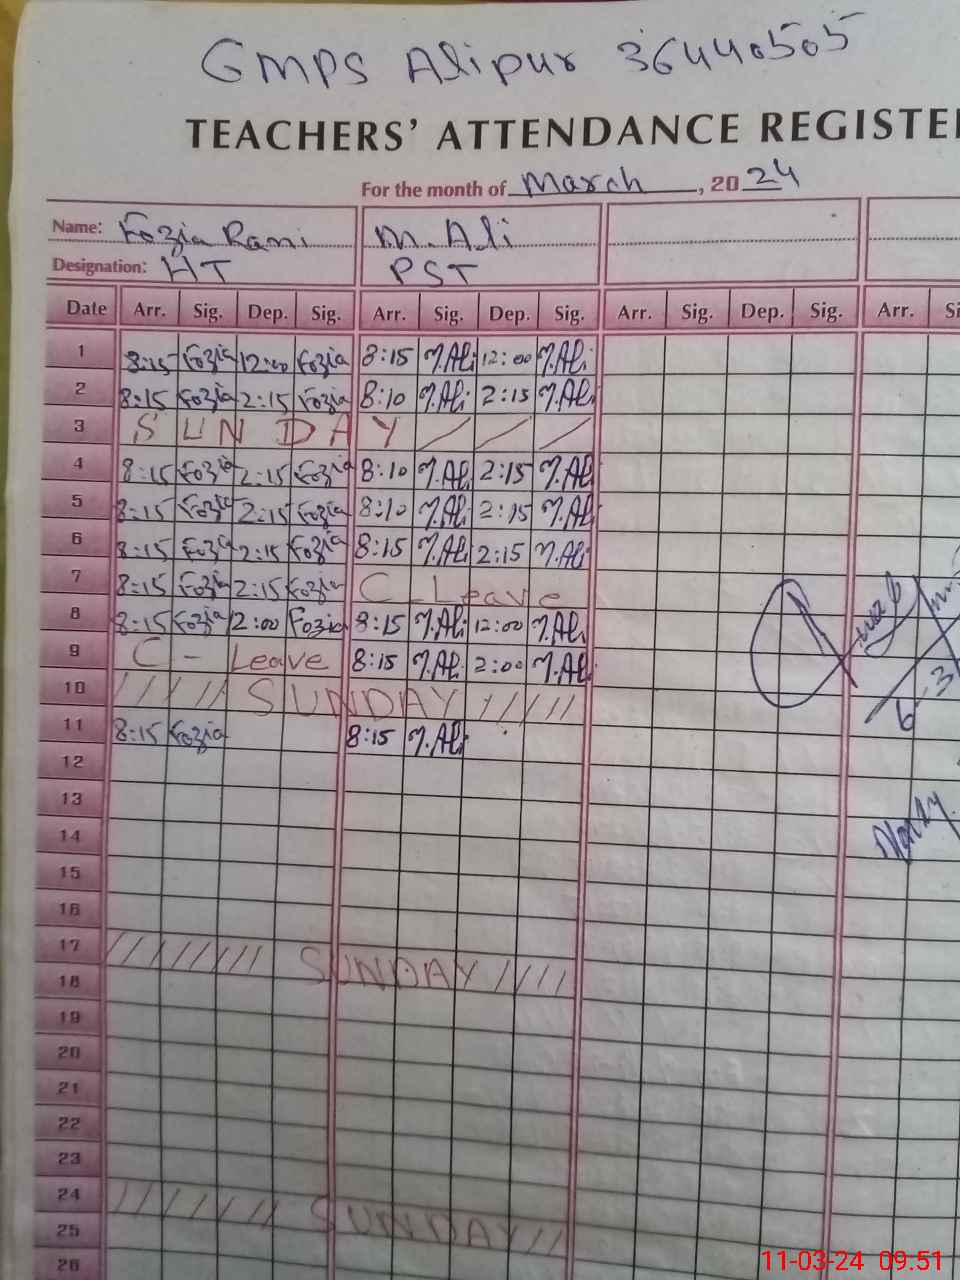 GMPS Alipur 36440505
TEACHERS' ATTENDANCE REGISTE
For the month of March, 2024
Name: Fozia Rani M. Ali
Designation: HT PST
Date Arr. Sig. Dep. Sig. Arr. Sig. Dep. Sig. Arr. Sig. Dep. Sig. Arr. Si
1 8:15 Fozia 12:00 Fozia 8:15 M.Ali 12:00 M.Ali
2 8:15 Fozia 2:15 Fozia 8:10 M.Ali 2:15 M.Ali
3 SUNDAY
4 8:15 Fozia 2:15 Fozia 8:10 M.Ali 2:15 M.Ali
5 8:15 Fozia 2:15 Fozia 8:10 M.Ali 2:15 M.Ali
6 8:15 Fozia 2:15 Fozia 8:15 M.Ali 2:15 M.Ali
7 8:15 Fozia 2:15 Fozia C-Leave
8 8:15 Fozia 12:00 Fozia 8:15 M.Ali 12:00 M.Ali
9 C-Leave 8:15 M.Ali 2:00 M.Ali
10 SUNDAY
11 8:15 Fozia 8:15 M.Ali
12
13
14
15
16
17 SUNDAY
18
19
20
21
22
23
24 SUNDAY
25
26
6-3
11-03-24 09.51